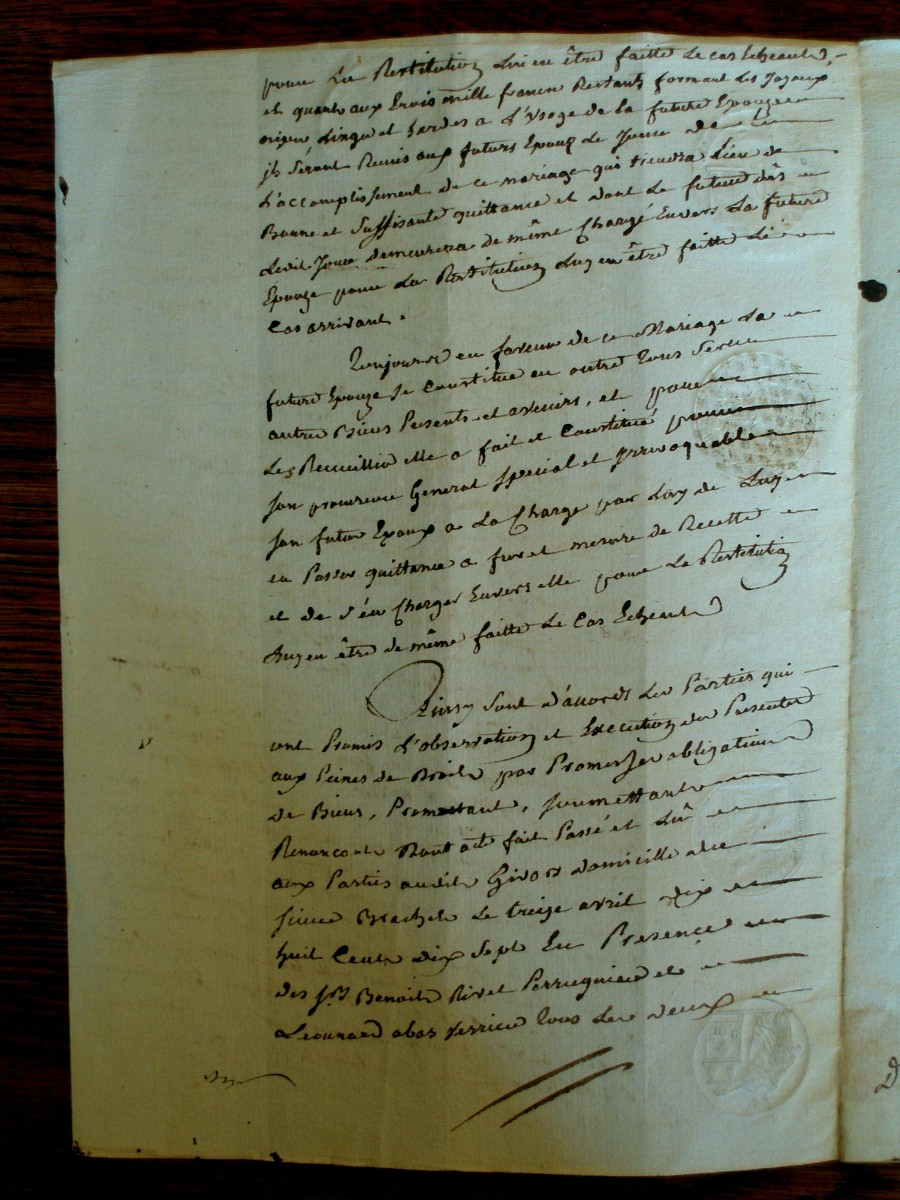 pour La Restitution Lui en être faitte Le cas Echeant,
et quant aux trois mille francs Restants formant Les Joyaux
Linge et hardes a L'Usage de la future Epouze
ils Seront Remis aux futurs Epoux Le Jour de
L'accomplissement de ce mariage qui tiendra Lieu de
Bonne et Suffisante quittance et dont Le futur dès
Ledit Jour demeurera de même Chargé Envers La future
Epouze pour La Restitution Luy en être faitte Le
Cas arrivant.
Toujours en faveur de ce Mariage La
future Epouze Se Constitue en outre tous Ses
autres Biens Presents et avenirs, et pour
Les Recueillir elle a fait et Constitué pour
Son procureur General Special et Irrevoquable
Son futur Epoux a La Charge par Luy de Luy
en Passer quittance a fur et mesure de Recette
et de S'en Charger Envers elle pour La Restitution
Luy en être de même faitte Le Cas Echeant
Ainsy Sont d'accords Les Parties qui
ont Promis L'observation et Execution des Presentes
aux Peines de Droit par Promesses obligations
de Biens, Promettant, Soumettant
Renonçant Dont acte fait Passé et Lû
aux Parties audit Givors domicille du
Sieur Brachet Le treize avril dix
huit Cent dix Sept En Presence
des Srs Benoit Rivet Perruquier et
Leonard abos verrier tous Les deux